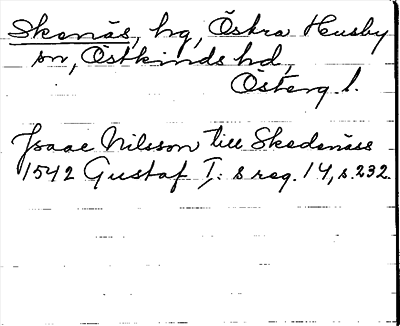 Skenäs, hg, Östra Husby
sn, Östkinds hd,
Österg. l.
Isaac Nilsson till Skedenäss
1542 Gustaf I: s reg. 14, s. 232.